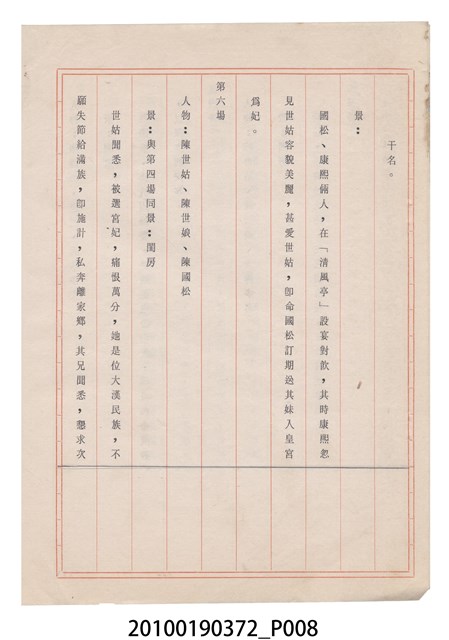 干名。
景：
國松、康熙倆人，在「清風亭」設宴對飲，其時康熙忽
見世姑容貌美麗，甚愛世姑，卽命國松訂期迎其妹入皇宮
爲妃。
第六場
人物：陳世姑、陳世娘、陳國松
景：與第四場同景：閨房
世姑聞悉，被選宮妃，痛恨萬分，她是位大漢民族，不
願失節給滿族，卽施計，私奔離家鄉，其兄聞悉，懇求次
20100190372_P008